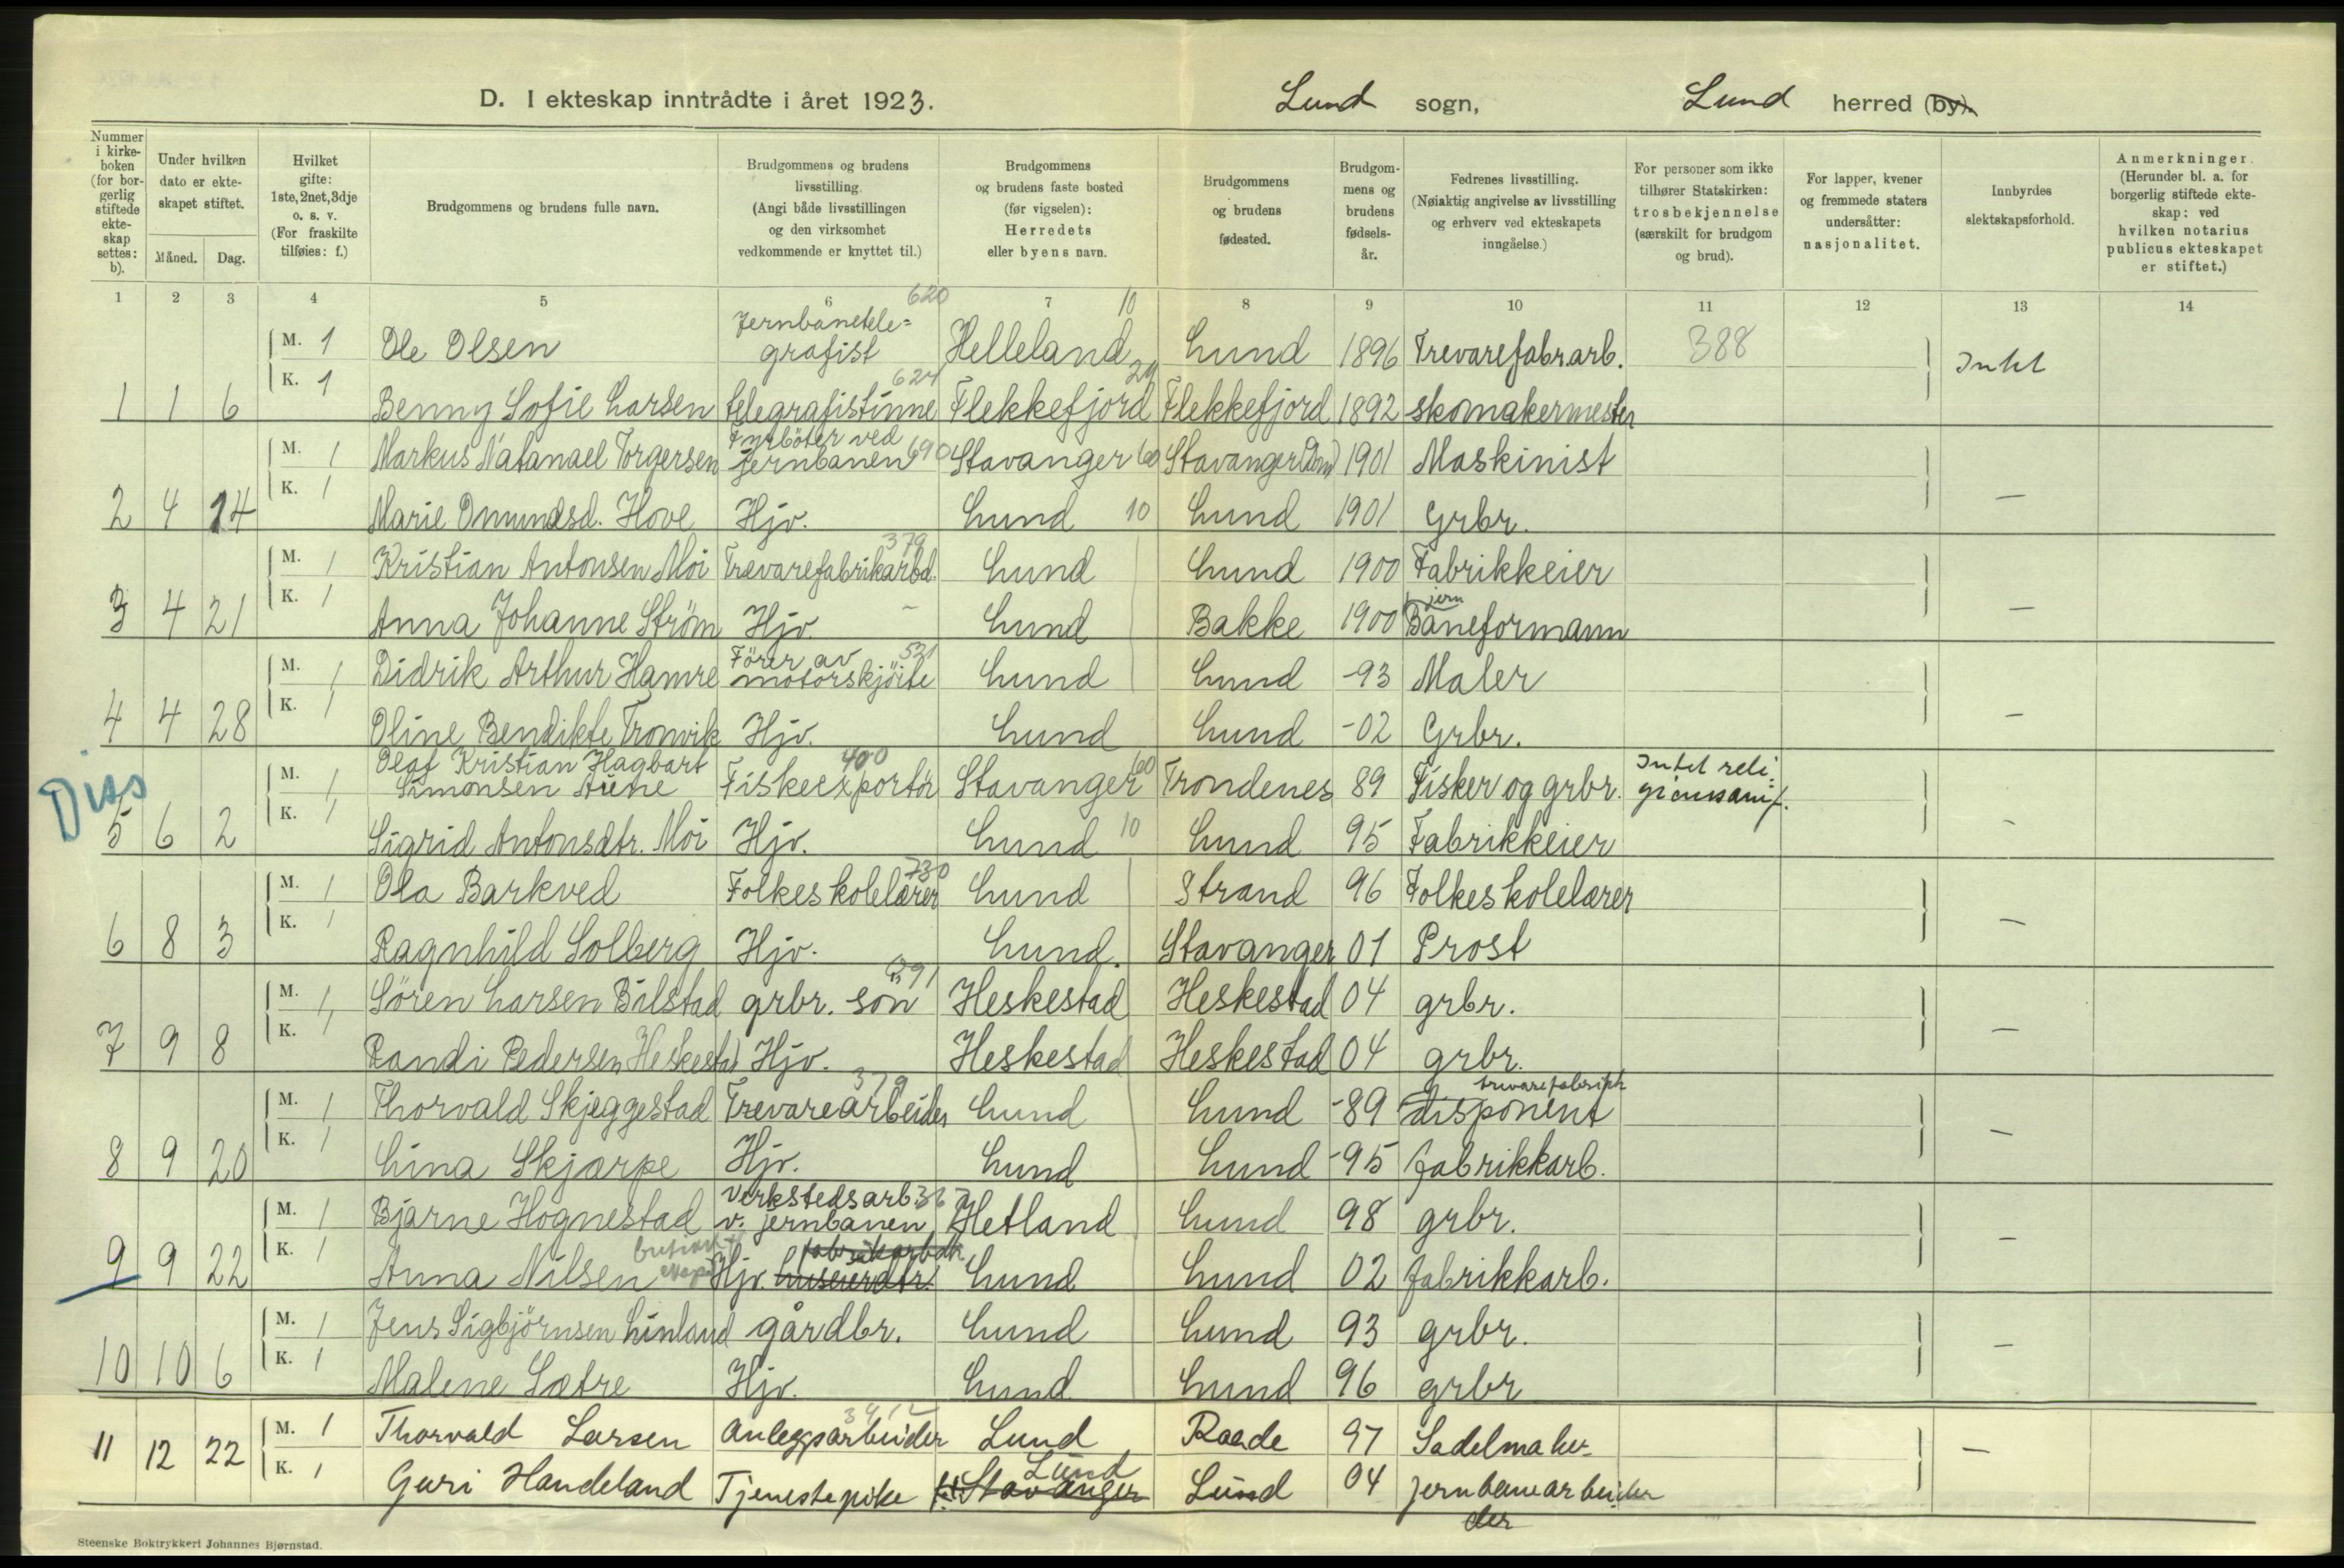 D. I ekteskap inntrådte i året 1923. Lund sogn, Lund herred (by).
Nummer i kirke-boken (for bor-gerlig stiftede ekte-skap settes: b).
Under hvilken dato er ekte-skapet stiftet.
Måned. Dag.
Hvilket gifte: 1ste, 2net, 3dje o. s. v. (For fraskilte tilføies: f.)
Brudgommens og brudens fulle navn.
Brudgommens og brudens livsstilling. (Angi både livsstillingen og den virksomhet vedkommende er knyttet til.)
Brudgommens og brudens faste bosted (før vigselen): Herredets eller byens navn.
Brudgommens og brudens fødested.
Brudgom-mens og brudens fødsels-år.
Fedrenes livsstilling. (Nøiaktig angivelse av livsstilling og erhverv ved ekteskapets inngåelse.)
For personer som ikke tilhører Statskirken: trosbekjennelse (særskilt for brudgom og brud).
For lapper, kvener og fremmede staters undersåtter: nasjonalitet.
Innbyrdes slektskapsforhold.
Anmerkninger. (Herunder bl. a. for borgerlig stiftede ekte-skap: ved hvilken notarius publicus ekteskapet er stiftet.)
1 2 3 4 5 6 7 8 9 10 11 12 13 14
620 10
M. 1 Ole Olsen Jernbanetele=grafist Helleland Lund 1896 Trevarefabr.arb. 388 Intet
624 20
1 1 6 K. 1 Benny Sofie Larsen telegrafistinne Flekkefjord Flekkefjord 1892 skomakermester
M. 1 Markus Natanael Torgersen Fyrböter ved jernbanen 690 Stavanger 60 Stavanger (Dom) 1901 Maskinist
2 4 14 K. 1 Marie Omundsd. Hove Hjv. Lund 10 Lund 1901 Grbr. —
M. 1 Kristian Antonsen Moi Trevarefabrikarbd. 379 Lund Lund 1900 Fabrikkeier
3 4 21 K. 1 Anna Johanne Ström Hjv. Lund Bakke 1900 jern Baneformann —
M. 1 Didrik Arthur Hamre Förer av motorskjöite 521 Lund Lund -93 Maler
4 4 28 K. 1 Oline Bendikte Tronvik Hjv. Lund Lund -02 Grbr. —
Diss
M. 1 Olaf Kristian Hagbart Simonsen Aune Fiskeexportör 400 Stavanger 60 Trondenes 89 Fisker og grbr. Intet reli-gionssamf.
5 6 2 K. 1 Sigrid Antonsdtr. Moi Hjv. Lund 10 Lund 95 Fabrikkeier -
M. 1 Ola Barkved Folkeskolelærer 730 Lund Strand 96 Folkeskolelærer
6 8 3 K. 1 Ragnhild Solberg Hjv. Lund. Stavanger 01 Prost —
M. 1 Sören Larsen Bilstad grbr. sön 291 Heskestad Heskestad 04 grbr.
7 9 8 K. 1 Randi Pedersen Heskestad Hjv. Heskestad Heskestad 04 grbr. —
M. 1 Thorvald Skjeggestad Trevarearbeider 379 Lund Lund -89 disponent trevarefabrikk
8 9 20 K. 1 Lina Skjærpe Hjv. Lund Lund -95 fabrikkarb. —
M. 1 Bjarne Hognestad Verkstedsarb. v. jernbanen Hetland Lund 98 grbr.
9 9 22 K. 1 Anna Nilsen Hjv. huseierdtr. fabrikarbdk. Lund Lund 02 fabrikkarb. —
M. 1 Jens Sigbjörnsen Linland gårdbr. Lund Lund 93 grbr.
10 10 6 K. 1 Malene Sætre Hjv. Lund Lund 96 grbr —
11 12 22 M. 1 Thorvald Larsen Anleggsarbeider Lund Raade 97 Sadelmaker —
K. 1 Guri Handeland Tjenestepike Stavanger Lund Lund 04 jernbanearbeider
der
Steenske Boktrykkeri Johannes Bjørnstad.